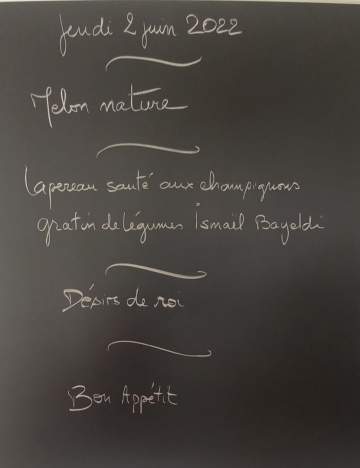 Jeudi 2 juin 2022
Melon nature
Lapereau sauté aux champignons
gratin de légumes Ismaël Bayeldi
Désirs de roi
Bon Appétit